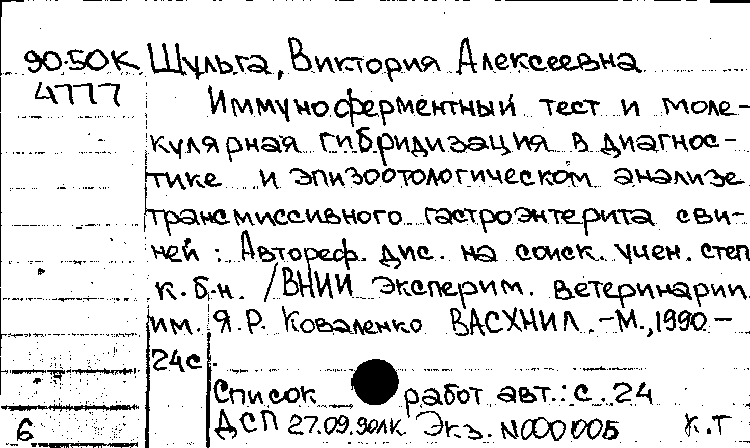 90-50К Шульга, Виктория Алексеевна
4777 Иммуноферментный тест и моле-
кулярная гибридизация в диагнос-
тике и эпизоотологическом анализе
трансмиссивного гастроэнтерита сви-
ней : Автореф. дис. на соиск. учен. степ
к.б.н. /ВНИИ эксперим. ветеринарии
им. Я.Р. Коваленко ВАСХНИЛ. -М.,1990.-
24с.
Список работ авт.: с. 24
ДСП 27.09.90лк Экз. N000005 к.т
6